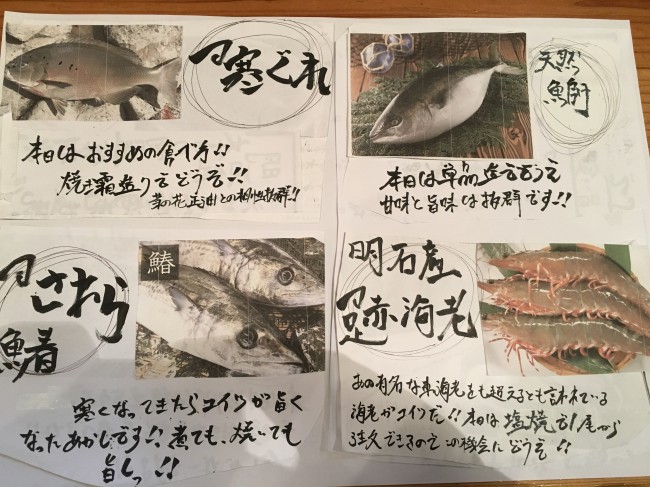 寒ぐれ
本日はおすすめの食べ方!!
焼き霜造りをどうぞ!!
菜の花正油との相性抜群!!
天然
鰤
本日は単品造でどうぞ
甘味と旨味は抜群です!!
さわら
鯖
鰆
寒くなってきたらコイツが旨く
なったあかしです!!煮ても、焼いても
旨しっ!!
明石産
足赤海老
あの有名な車海老をも超えるとも言われている
海老がコイツだ!!本日は塩焼で1尾から
注文できるのでこの機会にどうぞ!!